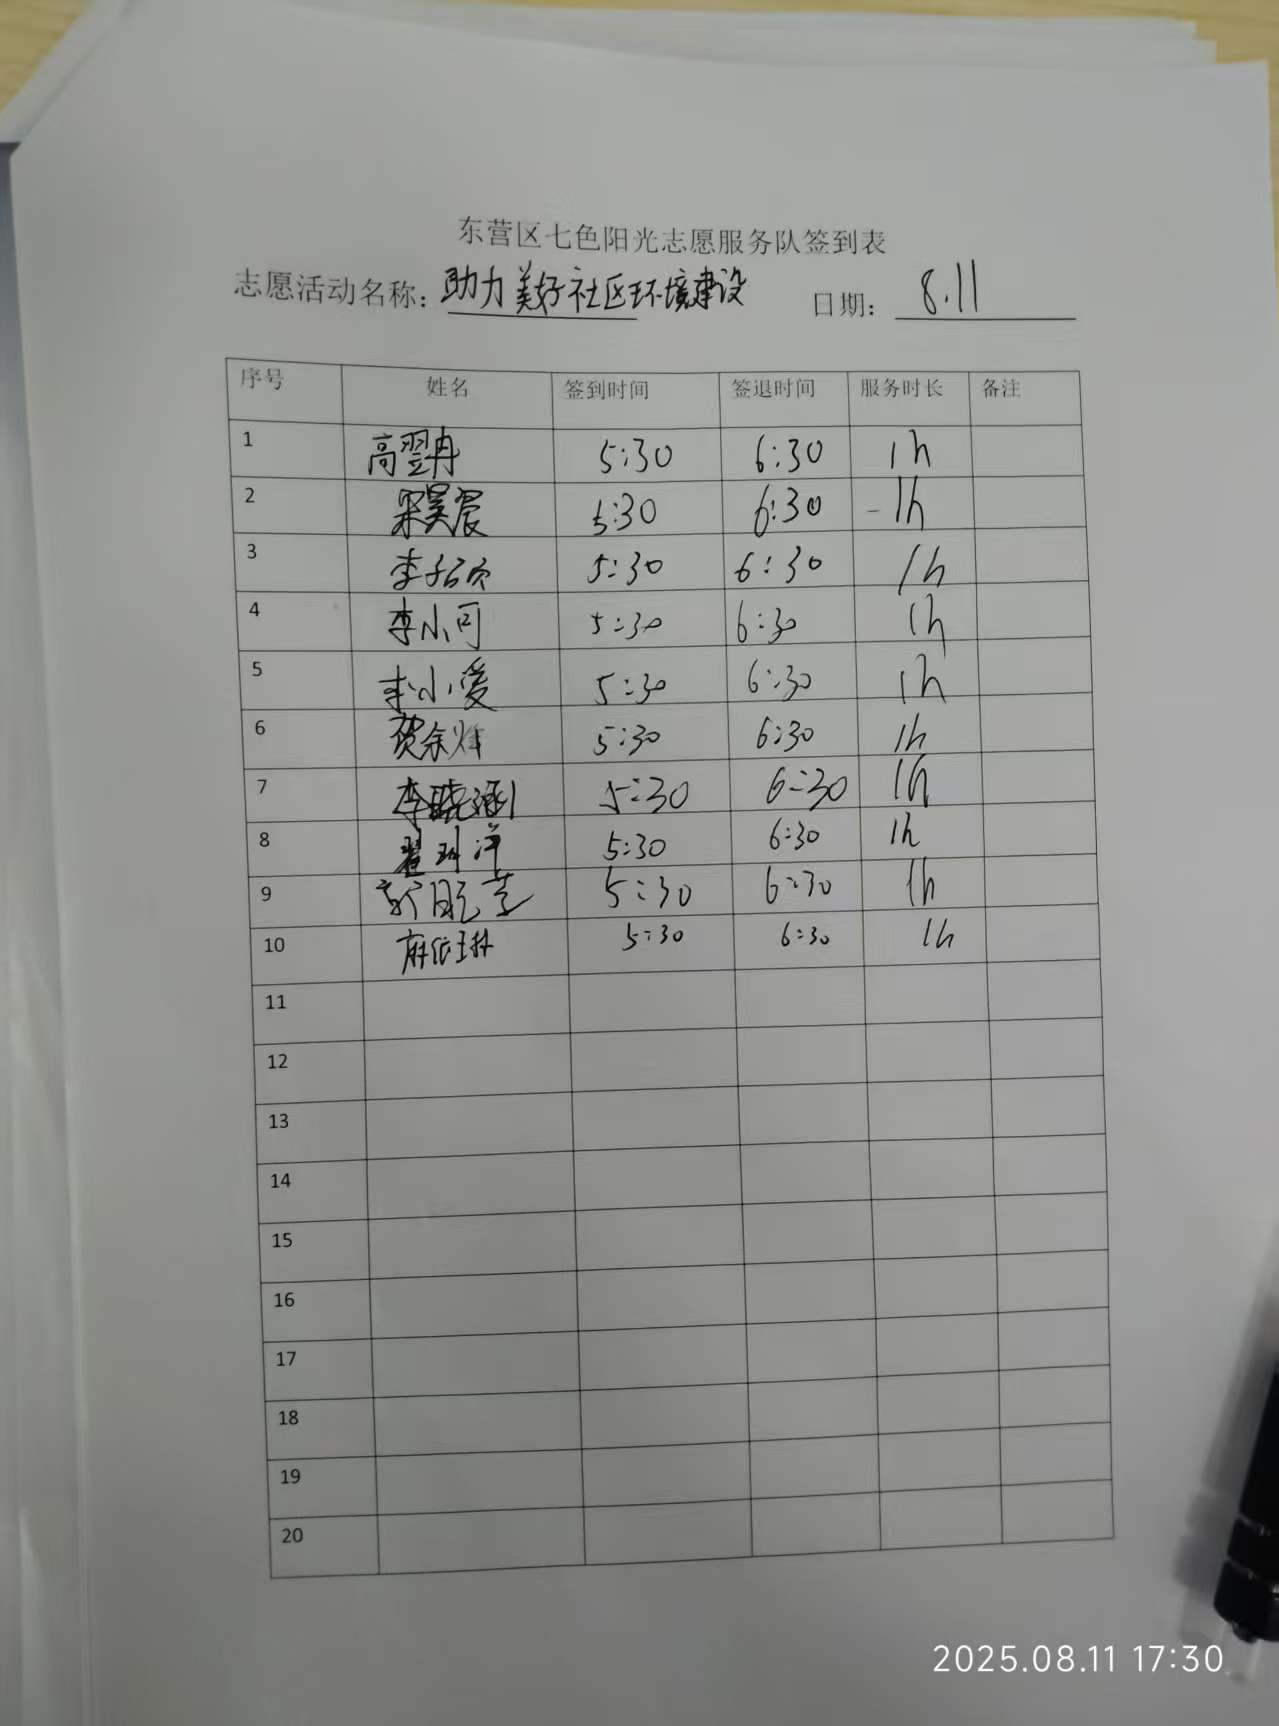 东营区七色阳光志愿服务队签到表
志愿活动名称：助力美好社区环境建设 日期：8.11
序号 姓名 签到时间 签退时间 服务时长 备注
1 高翌冉 5:30 6:30 1h
2 宋昊宸 5:30 6:30 1h
3 李子硕 5:30 6:30 1h
4 李小可 5:30 6:30 1h
5 李小爱 5:30 6:30 1h
6 贺余烽 5:30 6:30 1h
7 李晓涵 5:30 6:30 1h
8 5:30 6:30 1h
9 5:30 6:30 1h
10 麻依琳 5:30 6:30 1h
11
12
13
14
15
16
17
18
19
20
2025.08.11 17:30